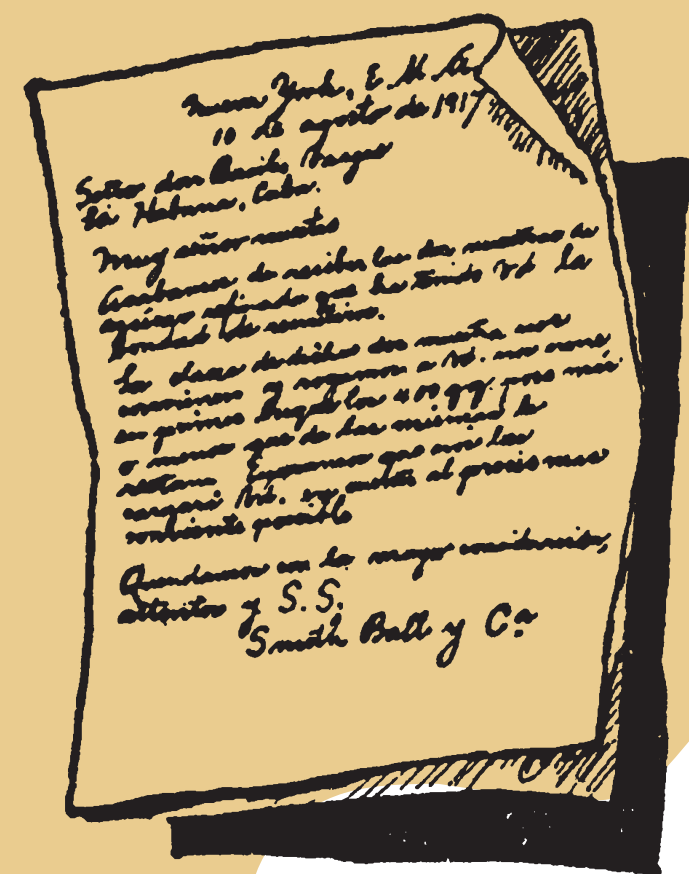 Nueva York, E. U. A.
10 de agosto de 1917
Señor don Basilio Vargas
La Habana, Cuba.
Muy señor nuestro
Acabamos de recibir las dos muestras de
azúcar refinado que ha tenido Vd la
bondad de remitirnos.
La clase de dichas dos muestra nos
conviene y rogamos a Vd. nos envie
en primer lugar los 400 qq. poco más
o menos que de las mismas le
restan. Esperamos que nos las
cargará Vd. en cuenta al precio mas
conveniente posible
Quedamos con la mayor consideración,
atentos y S. S.
Smith Ball y Cª